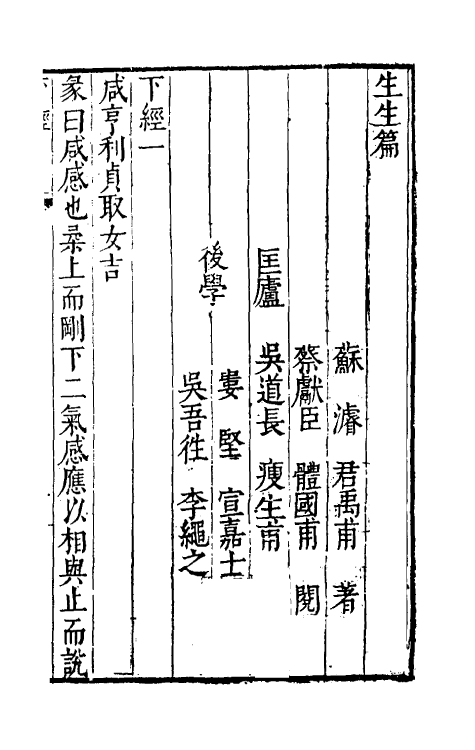 生生篇
蘇濬 君禹甫 著
蔡獻臣 體國甫 閱
匡廬 吳道長 瘦生甫
婁堅 宣嘉士
後學
吳吾往 李繩之
下經一
咸亨利貞取女吉
彖曰咸感也柔上而剛下二氣感應以相與止而說